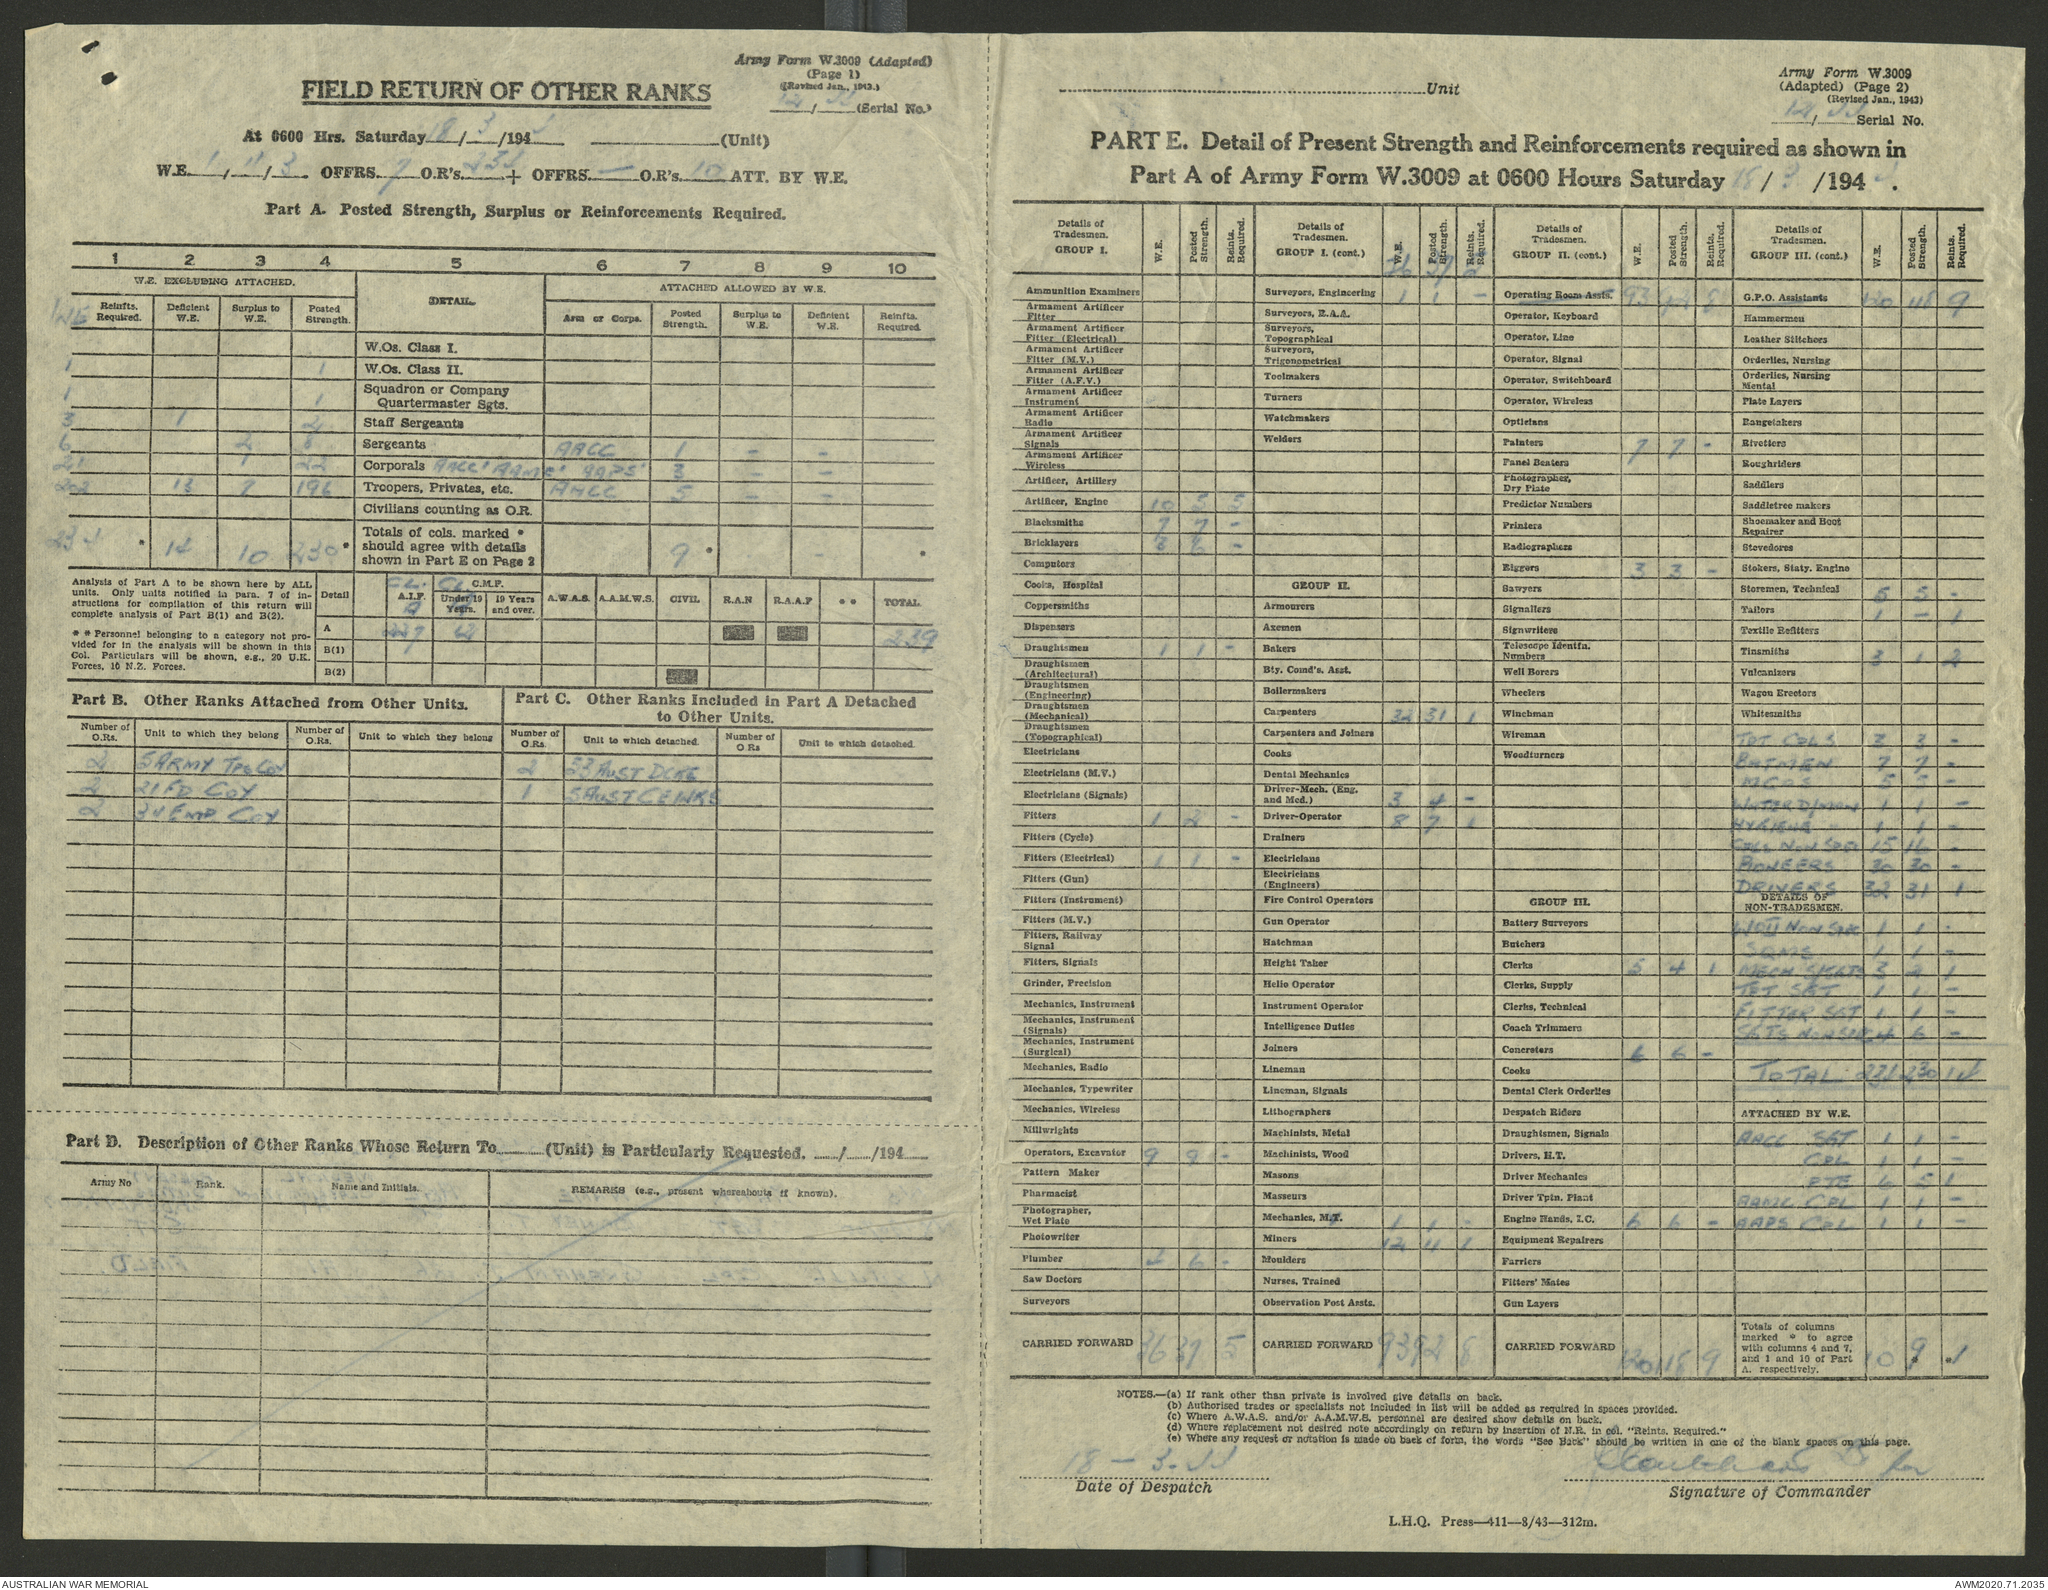 Army Form W.3009 (Adapted)
(Page 1)
(Revised Jan., 1943.)
FIELD RETURN OF OTHER RANKS
12/44 (Serial No.)
At 0600 Hrs. Saturday 18/3/1944 (Unit)
W.E. 1/11/3. OFFRS. 7 O.R's. 234 + OFFRS. — O.R's. 10 ATT. BY W.E.
Part A. Posted Strength, Surplus or Reinforcements Required.
1 2 3 4 5 6 7 8 9 10
W.E. EXCLUDING ATTACHED. DETAIL. ATTACHED ALLOWED BY W.E.
Reinfts. Required. Deficient W.E. Surplus to W.E. Posted Strength. Arm or Corps. Posted Strength. Surplus to W.E. Deficient W.E. Reinfts. Required.
W.Os. Class I.
1 1 W.Os. Class II.
1 1 Squadron or Company Quartermaster Sgts.
3 1 2 Staff Sergeants
6 2 8 Sergeants AACC 1 – –
21 1 22 Corporals AACC' AAMC' AAPS' 3 – –
202 13 7 196 Troopers, Privates, etc. AACC 5 – –
Civilians counting as O.R.
234 * 14 10 230 * Totals of cols. marked * should agree with details shown in Part E on Page 2 9 * – *
Analysis of Part A to be shown here by ALL units. Only units notified in para. 7 of instructions for compilation of this return will complete analysis of Part B(1) and B(2).
* * Personnel belonging to a category not provided for in the analysis will be shown in this Col. Particulars will be shown, e.g., 20 U.K. Forces, 10 N.Z. Forces.
Detail A.I.F. C.M.F. Under 19 Years. 19 Years and over. A.W.A.S. A.A.M.W.S. CIVIL R.A.N R.A.A.F * * TOTAL
A 227 12 239
B(1)
B(2)
Part B. Other Ranks Attached from Other Units.
Part C. Other Ranks Included in Part A Detached to Other Units.
Number of O.Rs. Unit to which they belong Number of O.Rs. Unit to which they belong Number of O.Rs. Unit to which detached. Number of O.Rs Unit to which detached.
2 5 ARMY TPS COY 2 53 AUST DCRE
2 21 FD COY 1 5 AUST CE WKS
2 34 EMP. COY
Part D. Description of Other Ranks Whose Return To (Unit) is Particularly Requested. / /194
Army No Rank. Name and Initials. REMARKS (e.g., present whereabouts if known).
Unit
Army Form W.3009
(Adapted) (Page 2)
(Revised Jan., 1943)
12/44 Serial No.
PART E. Detail of Present Strength and Reinforcements required as shown in
Part A of Army Form W.3009 at 0600 Hours Saturday 18/3/1944.
Details of Tradesmen. GROUP I. W.E. Posted Strength. Reints. Required.
Ammunition Examiners
Armament Artificer Fitter
Armament Artificer Fitter (Electrical)
Armament Artificer Fitter (M.V.)
Armament Artificer Fitter (A.F.V.)
Armament Artificer Instrument
Armament Artificer Radio
Armament Artificer Signals
Armament Artificer Wireless
Artificer, Artillery
Artificer, Engine 10 5 5
Blacksmiths 7 7 –
Bricklayers 6 –
Computors
Cooks, Hospital
Coppersmiths
Dispensers
Draughtsmen 1 1 –
Draughtsmen (Architectural)
Draughtsmen (Engineering)
Draughtsmen (Mechanical)
Draughtsmen (Topographical)
Electricians
Electricians (M.V.)
Electricians (Signals)
Fitters 1 2 –
Fitters (Cycle)
Fitters (Electrical) 1 1 –
Fitters (Gun)
Fitters (Instrument)
Fitters (M.V.)
Fitters, Railway Signal
Fitters, Signals
Grinder, Precision
Mechanics, Instrument
Mechanics, Instrument (Signals)
Mechanics, Instrument (Surgical)
Mechanics, Radio
Mechanics, Typewriter
Mechanics, Wireless
Millwrights
Operators, Excavator 9 9 –
Pattern Maker
Pharmacist
Photographer, Wet Plate
Photowriter
Plumber 4 6 –
Saw Doctors
Surveyors
CARRIED FORWARD 36 37 5
Details of Tradesmen. GROUP I. (cont.) W.E. Posted Strength. Reints. Required.
36 37 5
Surveyors, Engineering 1 1 –
Surveyors, R.A.A.
Surveyors, Topographical
Surveyors, Trigonometrical
Toolmakers
Turners
Watchmakers
Welders
GROUP II.
Armourers
Axemen
Bakers
Bty. Comd's. Asst.
Boilermakers
Carpenters 32 31 1
Carpenters and Joiners
Cooks
Dental Mechanics
Driver-Mech. (Eng. and Mcd.) 3 4 –
Driver-Operator 8 7 1
Drainers
Electricians
Electricians (Engineers)
Fire Control Operators
Gun Operator
Hatchman
Height Taker
Helio Operator
Instrument Operator
Intelligence Duties
Joiners
Lineman
Lineman, Signals
Lithographers
Machinists, Metal
Machinists, Wood
Masons
Masseurs
Mechanics, M.T. 1 1 –
Miners 12 11 1
Moulders
Nurses, Trained
Observation Post Assts.
CARRIED FORWARD 93 92 8
Details of Tradesmen. GROUP II. (cont.) W.E. Posted Strength. Reints. Required.
Operating Room Assts. 93 92 8
Operator, Keyboard
Operator, Line
Operator, Signal
Operator, Switchboard
Operator, Wireless
Opticians
Painters 7 7 –
Panel Beaters
Photographer, Dry Plate
Predictor Numbers
Printers
Radiographers
Riggers 3 3 –
Sawyers
Signallers
Signwriters
Telescope Identfn. Numbers
Well Borers
Wheelers
Winchman
Wireman
Woodturners
GROUP III.
Battery Surveyors
Butchers
Clerks 5 4 1
Clerks, Supply
Clerks, Technical
Coach Trimmers
Concreters 6 6 –
Cooks
Dental Clerk Orderlies
Despatch Riders
Draughtsmen, Signals
Drivers, H.T.
Driver Mechanics
Driver Tptn. Plant
Engine Hands, I.C. 6 6 –
Equipment Repairers
Farriers
Fitters' Mates
Gun Layers
CARRIED FORWARD 120 118 9
Details of Tradesmen. GROUP III. (cont.) W.E. Posted Strength. Reints. Required.
G.P.O. Assistants 120 118 9
Hammermen
Leather Stitchers
Orderlies, Nursing
Orderlies, Nursing Mental
Plate Layers
Rangetakers
Rivetters
Roughriders
Saddlers
Saddletree makers
Shoemaker and Boot Repairer
Stevedores
Stokers, Staty. Engine
Storemen, Technical 5 5 –
Tailors 1 – 1
Textile Refitters
Tinsmiths 3 1 2
Vulcanizers
Wagon Erectors
Whitesmiths
TPT CPLS 3 3 –
BATMEN 7 7 –
MCDS 5 5 –
WATER D/MAN 1 1 –
HYGIENE 1 1 –
CPLS NON SPEC 15 16 –
PIONEERS 30 30 –
DRIVERS 32 31 1
DETAILS OF NON-TRADESMEN.
WOII NON SPEC 1 1 –
SQMS 1 1 –
MECH S/SGTS 3 2 1
TPT SGT 1 1 –
FITTER SGT 1 1 –
SGTS NON SPEC 4 6 –
TOTAL 234 230 14
ATTACHED BY W.E.
AACC SGT 1 1 –
CPL 1 1 –
PTE 6 5 1
AAMC CPL 1 1 –
AAPS CPL 1 1 –
Totals of columns marked * to agree with columns 4 and 7, and 1 and 10 of Part A. respectively. 10 9 * * 1
NOTES.—(a) If rank other than private is involved give details on back.
(b) Authorised trades or specialists not included in list will be added as required in spaces provided.
(c) Where A.W.A.S. and/or A.A.M.W.S. personnel are desired show details on back.
(d) Where replacement not desired note accordingly on return by insertion of N.R. in col. "Reints. Required."
(e) Where any request or notation is made on back of form, the words "See Back" should be written in one of the blank spaces on this page.
18 – 3 – 44
Date of Despatch
Signature of Commander
L.H.Q. Press—411—8/43—312m.
AUSTRALIAN WAR MEMORIAL
AWM2020.71.2035